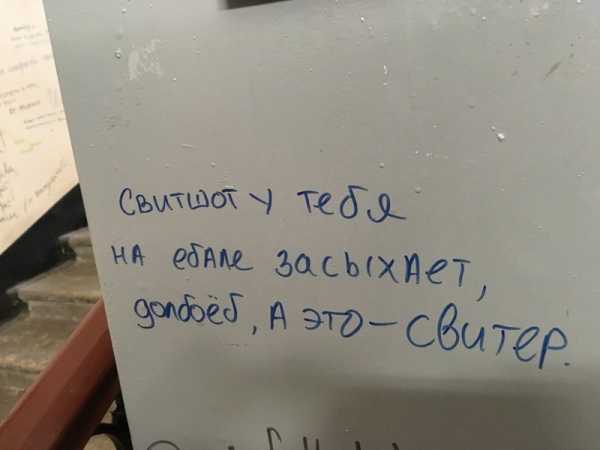 Свитшот у тебя
на ебале засыхает,
долбоёб, а это – свитер.